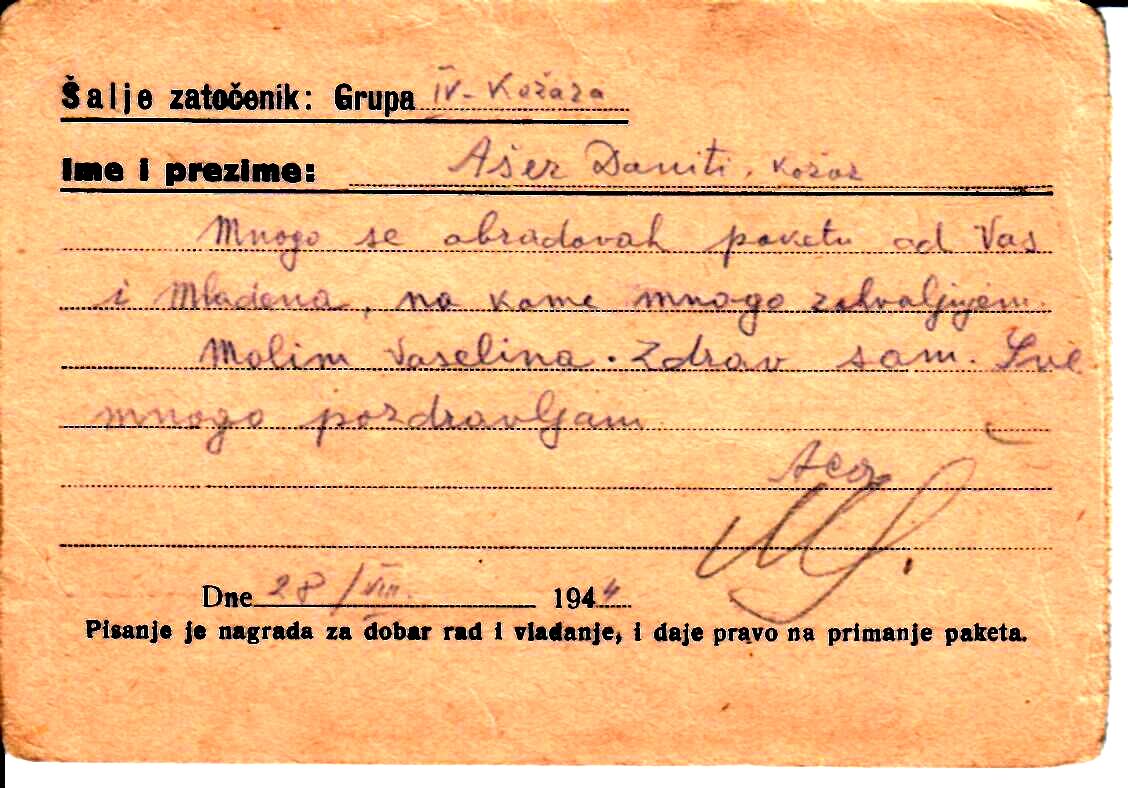 Šalje zatočenik: Grupa IV - Kožara
Ime i prezime: Ašer Daniti, Kožar
Mnogo se obradovah paketu od Vas
i Mladena, na kome mnogo zahvaljujem.
Molim vaselina. Zdrav sam. Sve
mnogo pozdravljam
Dne 28/VIII. 1944
Pisanje je nagrada za dobar rad i vladanje, i daje pravo na primanje paketa.